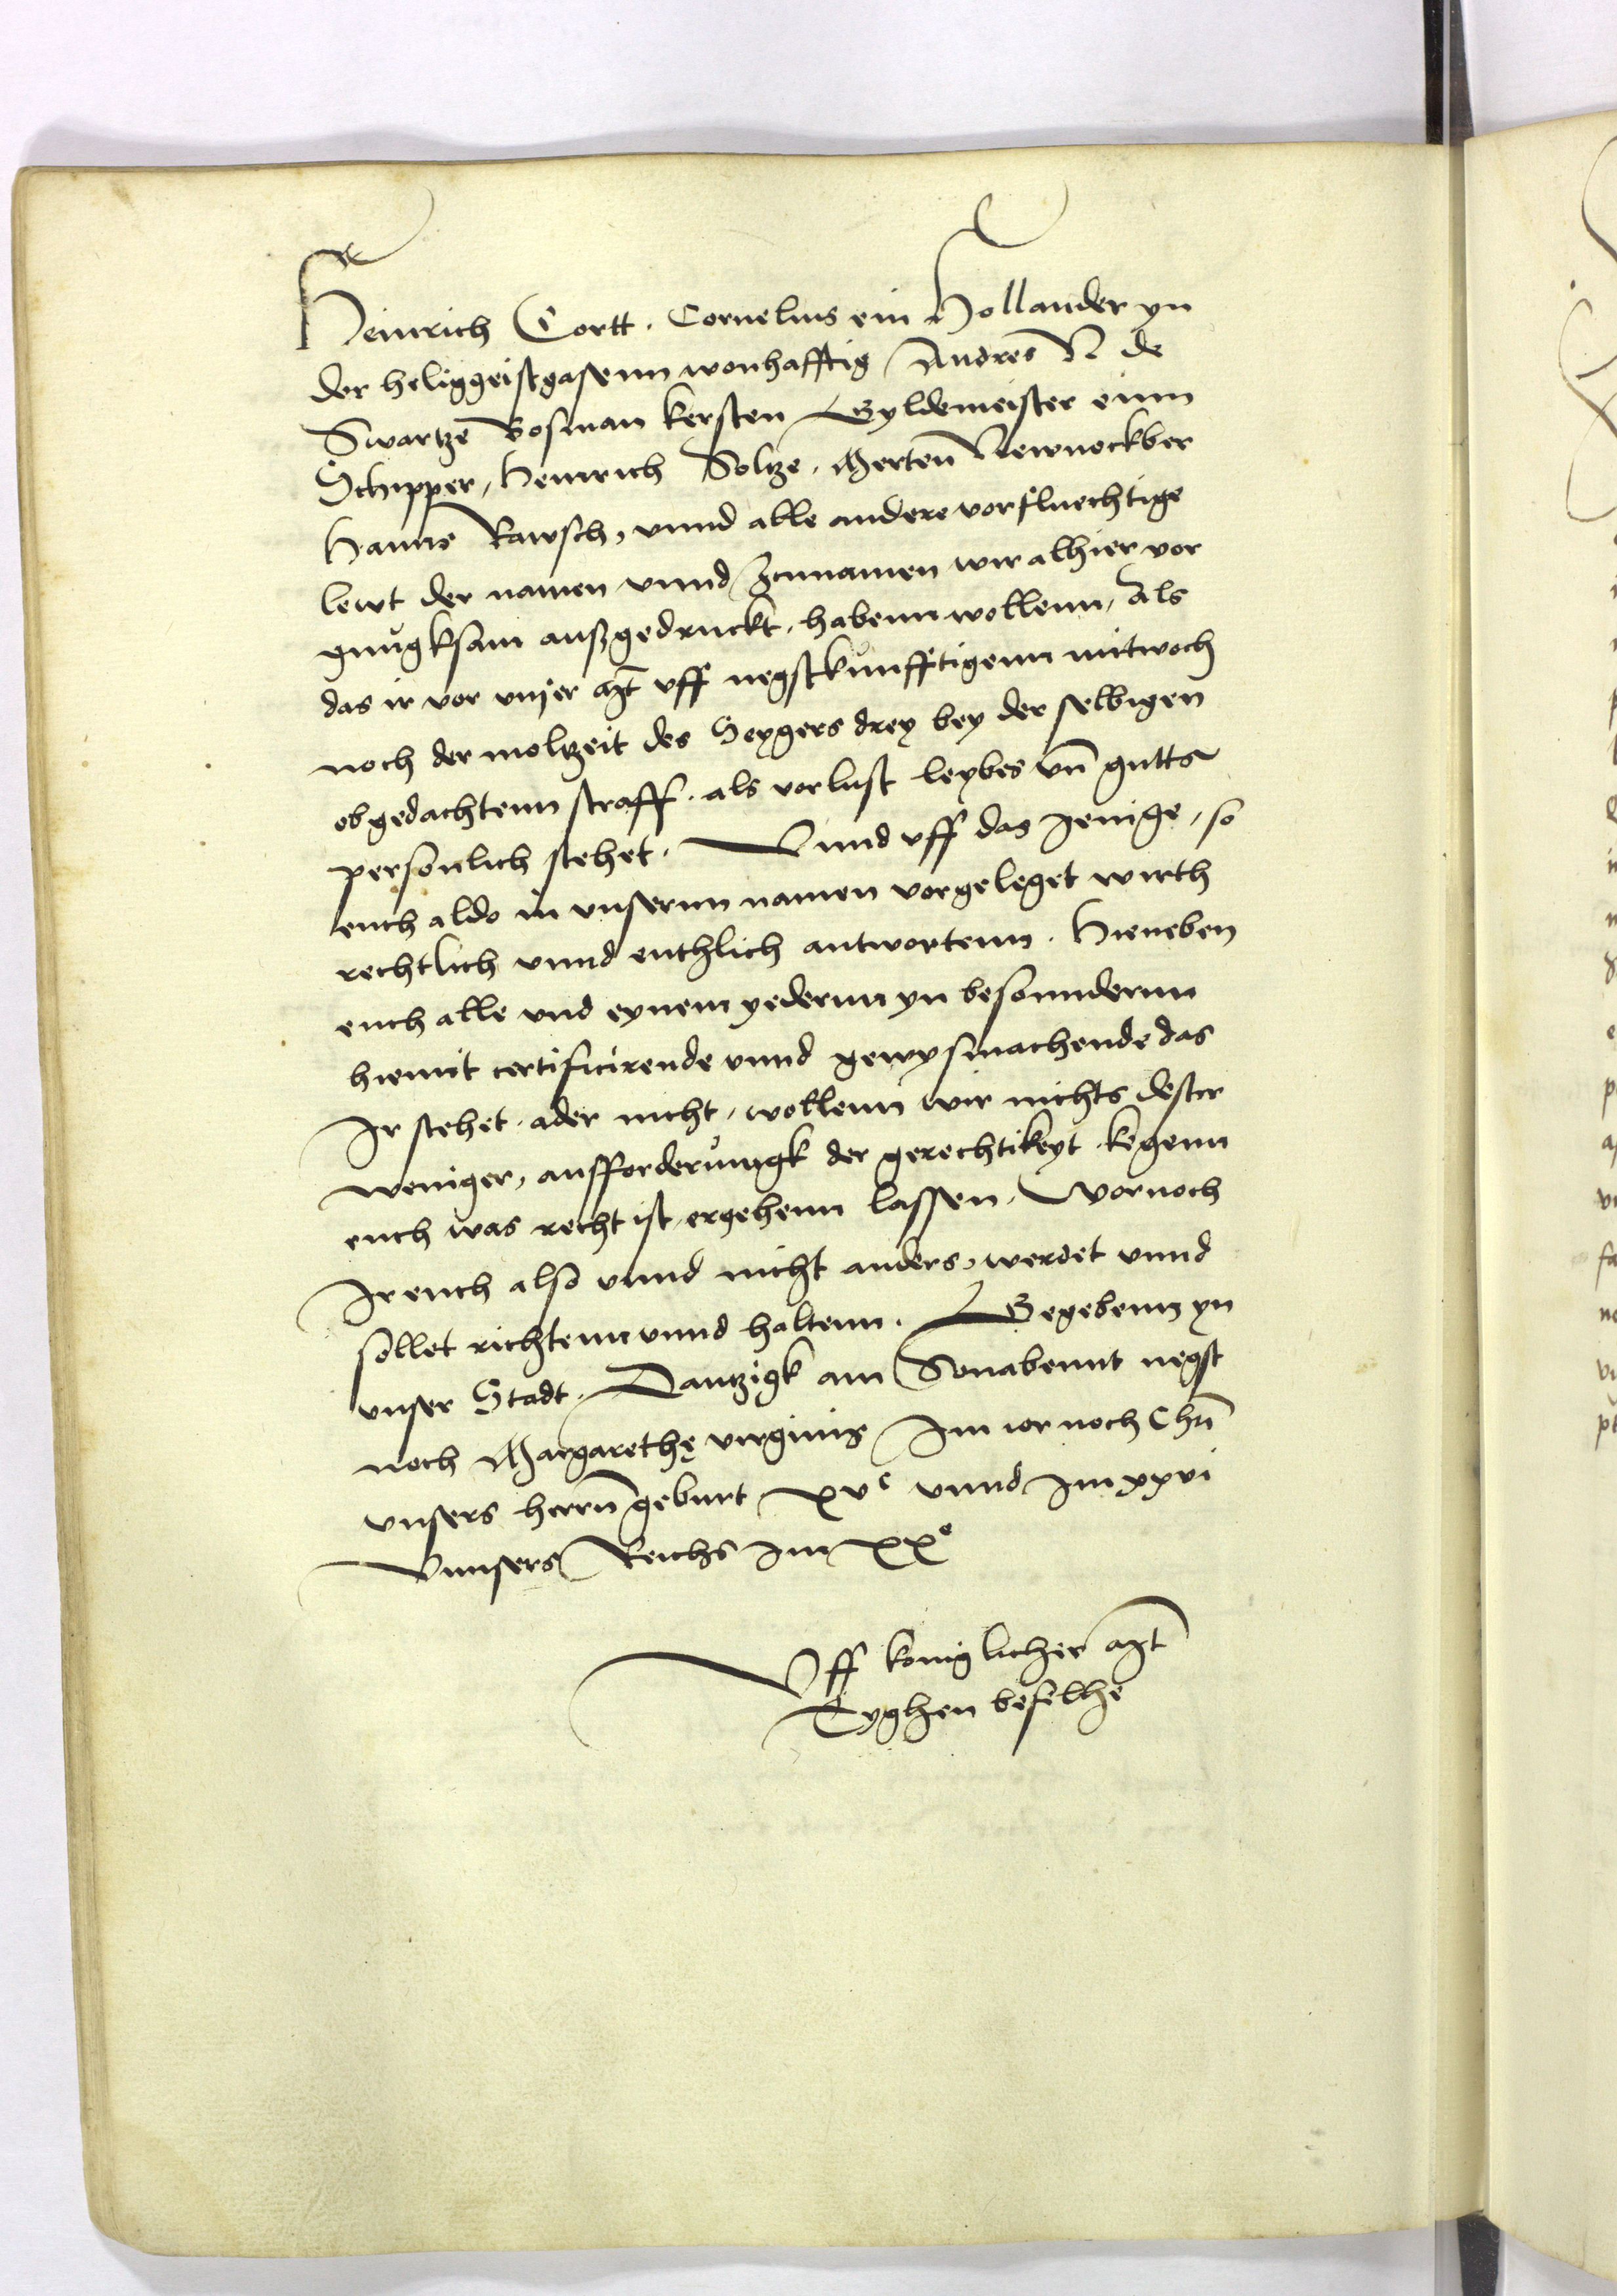 Heinrich Cortt. Cornelius ein Hollander yn
der heliggeistgasenn wonhafftig Andres N de
Swartze Bosman kersten Gyldemeister einn
Schipper, Heinrich Soltze, Merten Newnockber
Hanns Rawsch, vnnd alle andere vorfluechtige
lewt der namen vnnd Zcunamen wir alhier vor
gnugksam außgedruckt, habenn wollenn, Als
das ir vor vnser Mt vff negstkunfftigenn mitwoch
noch der moltzeit des Seygers drey bey der selbigen
obgedachtenn straff. als vorlust leybes vn̄ gutts
personlich stehet. Vnnd vff das Jenige, so
euch aldo in vnsernn namen vorgeleget wirth
rechtlich vnnd enthlich antwortenn. Hieneben
euch alle vnd eynem yedernn yn besonndernn
hiemit certificirende vnnd gewysmachende das
Ir stehet. ader nicht, wollenn wir nichts dester
weniger, ausforderungk der gerechtikeyt kegenn
euch was recht ist, ergehenn lassen. Wornoch
Ir euch also vnnd nicht anders, werdet vnnd
sollet richtenn vnnd haltenn. Gegebenn yn
vnser Stadt Dantzigk am Sonabennt negst
noch Margarethę virginis Im ior noch Chri̅
vnsers herrn̅ geburt xvc vnnd Im xxvi
Vnnsers Reichs im xxe
Vff koniglicher Mt
Eyghen befelhe